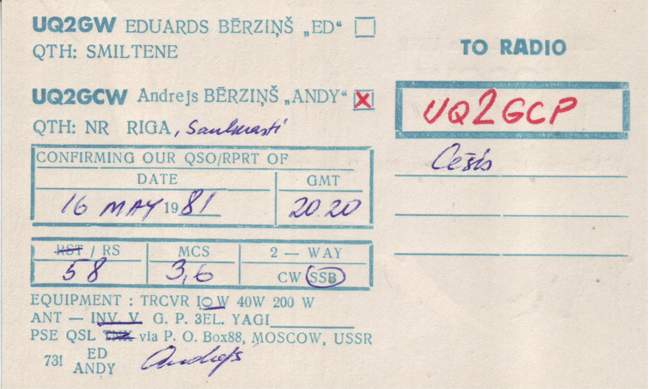 UQ2GW EDUARDS BĒRZIŅŠ „ED"
QTH: SMILTENE
UQ2GCW Andrejs BĒRZIŅŠ „ANDY" X
QTH: NR RIGA, Saulkrasti
CONFIRMING OUR QSO/RPRT OF
DATE GMT
16 MAY 1981 20.20
RST / RS MCS 2 — WAY
58 3,6 CW SSB
EQUIPMENT : TRCVR 10 W 40W 200 W
ANT — INV. V. G. P. 3EL. YAGI
PSE QSL via P. O. Box88, MOSCOW, USSR
731 ED
ANDY Andrejs
TO RADIO
UQ2GCP
Cēsis